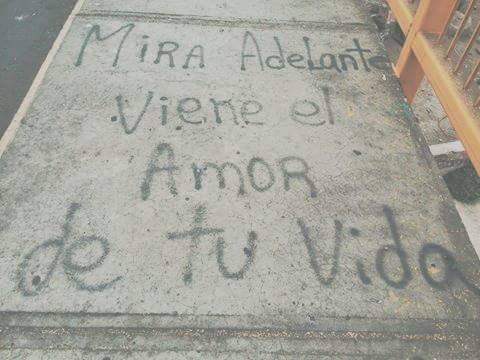 Mira Adelante
Viene el
Amor
de tu Vida